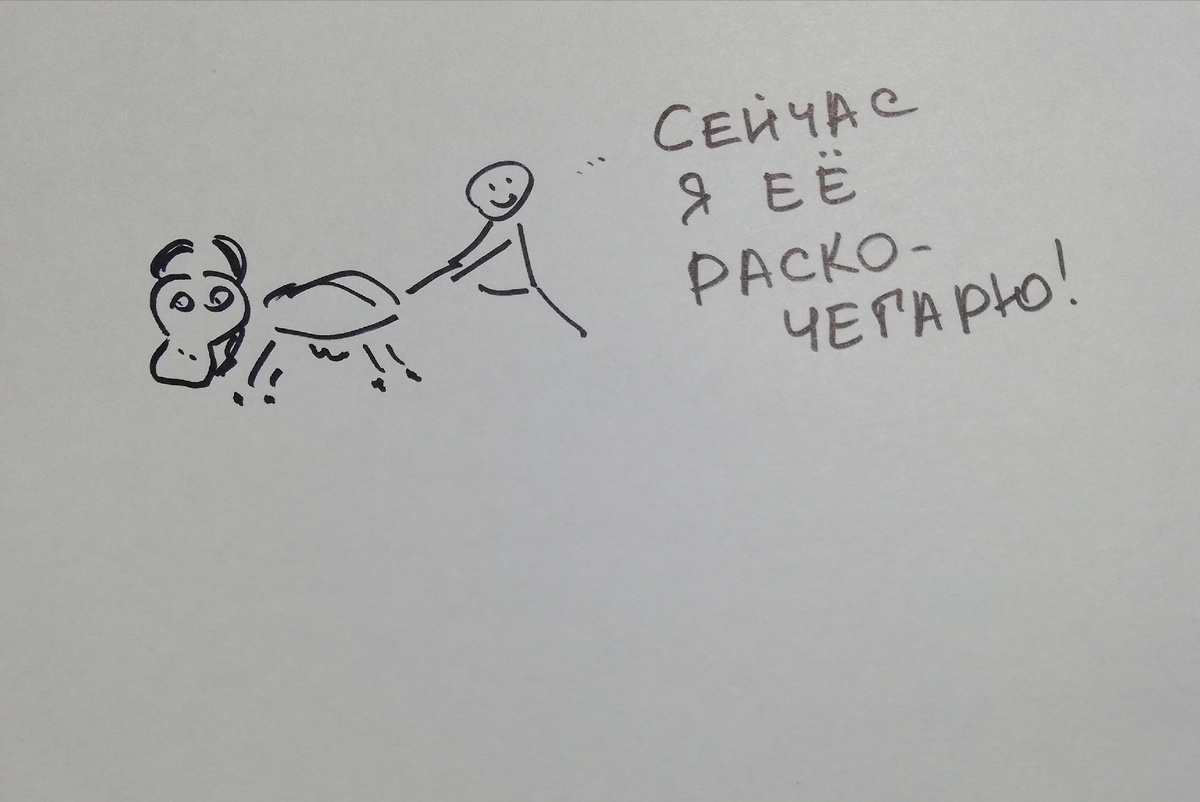 СЕЙЧАС
Я ЕЁ
РАСКО-
ЧЕГАРЮ!